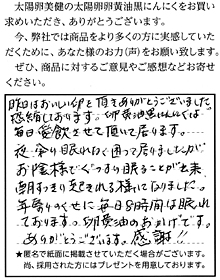 太陽卵美健の太陽卵卵黄油黒にんにくをお買い
求めいただき、ありがとうございます。
今、弊社では商品をより多くの方に実感していた
だくために、あなた様のお力(声)をお願い致します。
ぜひ、商品に対するご意見やご感想などお寄せ
ください。
昨日はおいしい卵を頂きありがとうございました。
感謝しております。卵黄油黒にんにくは
毎日愛飲させて頂いて居ります。
夜余り眠れなくて困って居りましたが
お陰様でぐっすり眠ることが出来
朝すっきり起きれる様になりました。
年寄りのくせに毎日8時間は眠れ
ております。卵黄油のおかげです。
ありがとうございます。感謝!!
★匿名で紙面に掲載させていただく場合がございます。
尚、採用された方にはプレゼントを用意しております。